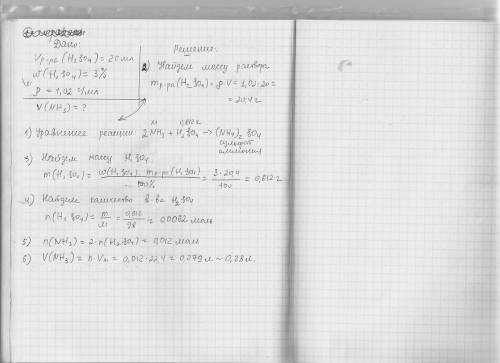 Дано:
Vр-ра(H₂SO₄) = 20 мл
ω(H₂SO₄) = 3%
ρ = 1,02 г/мл
V(NH₃) = ?
Решение:
2) Найдем массу раствора
mр-ра(H₂SO₄) = ρ·V = 1,02·20 =
= 20,4 г
1) Уравнение реакции: 2NH₃ + H₂SO₄ → (NH₄)₂SO₄
сульфат
аммония
3) Найдем массу H₂SO₄
m(H₂SO₄) = ω(H₂SO₄)·mр-ра(H₂SO₄) / 100% = 3·20,4 / 100 = 0,612 г
4) Найдем количество в-ва H₂SO₄
n(H₂SO₄) = m/M = 0,612/98 = 0,0062 моль
5) n(NH₃) = 2·n(H₂SO₄) = 0,012 моль
6) V(NH₃) = n·Vm = 0,012·22,4 = 0,279 л ~ 0,28 л.